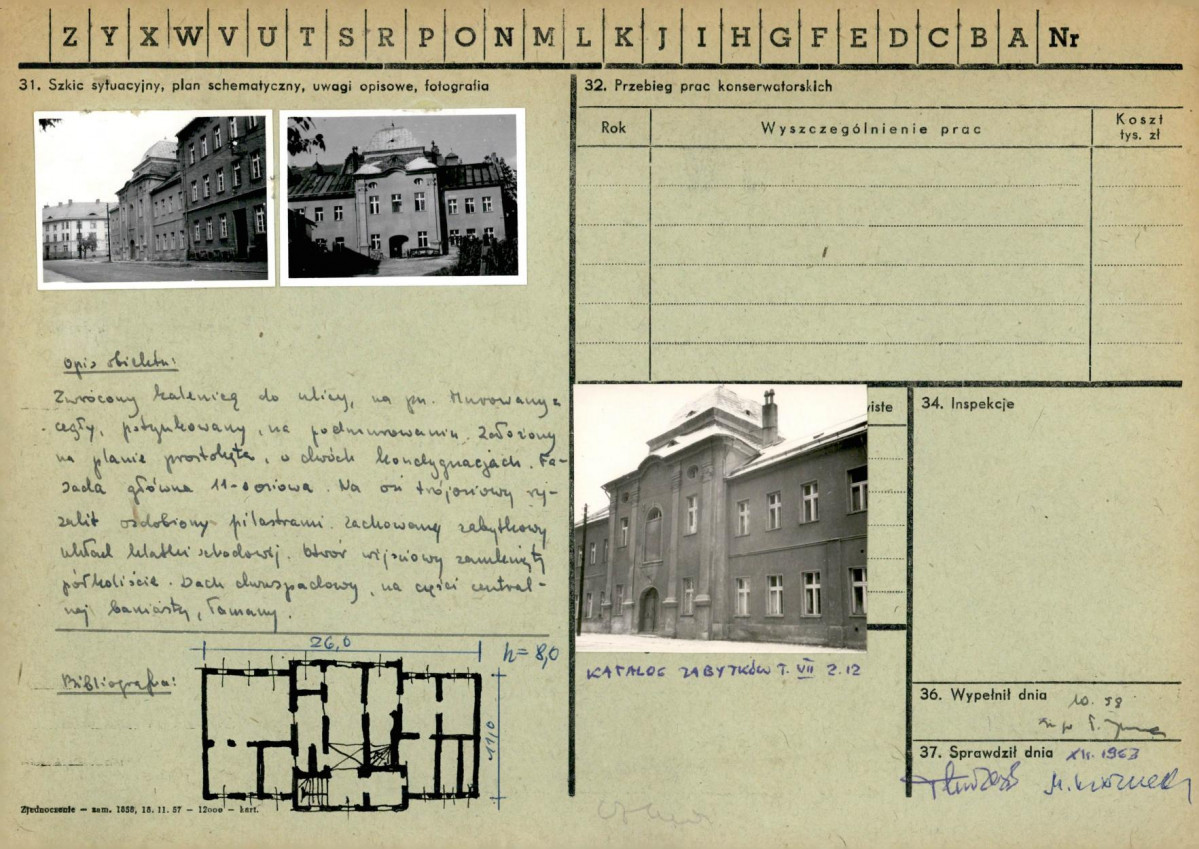 Z Y X W V U T S R P O N M L K J I H G F E D C B A Nr
31. Szkic sytuacyjny, plan schematyczny, uwagi opisowe, fotografia
Opis obiektu:
Zwrócony kalenicą do ulicy, na pn. Murowany z
cegły, potynkowany, na podmurowaniu. Założony
na planie prostokąta, o dwóch kondygnacjach. Fa-
sada główna 11-osiowa. Na osi trójosiowy ry-
zalit ozdobiony pilastrami. Zachowany zabytkowy
układ klatki schodowej. Otwór wejściowy zamknięty
półkoliście. Dach dwuspadowy, na części central-
nej baniasty, łamany.
26,0
h = 8,0
11,0
Bibliografia:
Zjednoczenie — zam. 1858, 18. 11. 57 — 12000 — kart.
32. Przebieg prac konserwatorskich
Rok
Wyszczególnienie prac
Koszt
tys. zł
iste
34. Inspekcje
KATALOG ZABYTKÓW T. VII Z. 12
36. Wypełnił dnia 10. 59
37. Sprawdził dnia XII. 1963